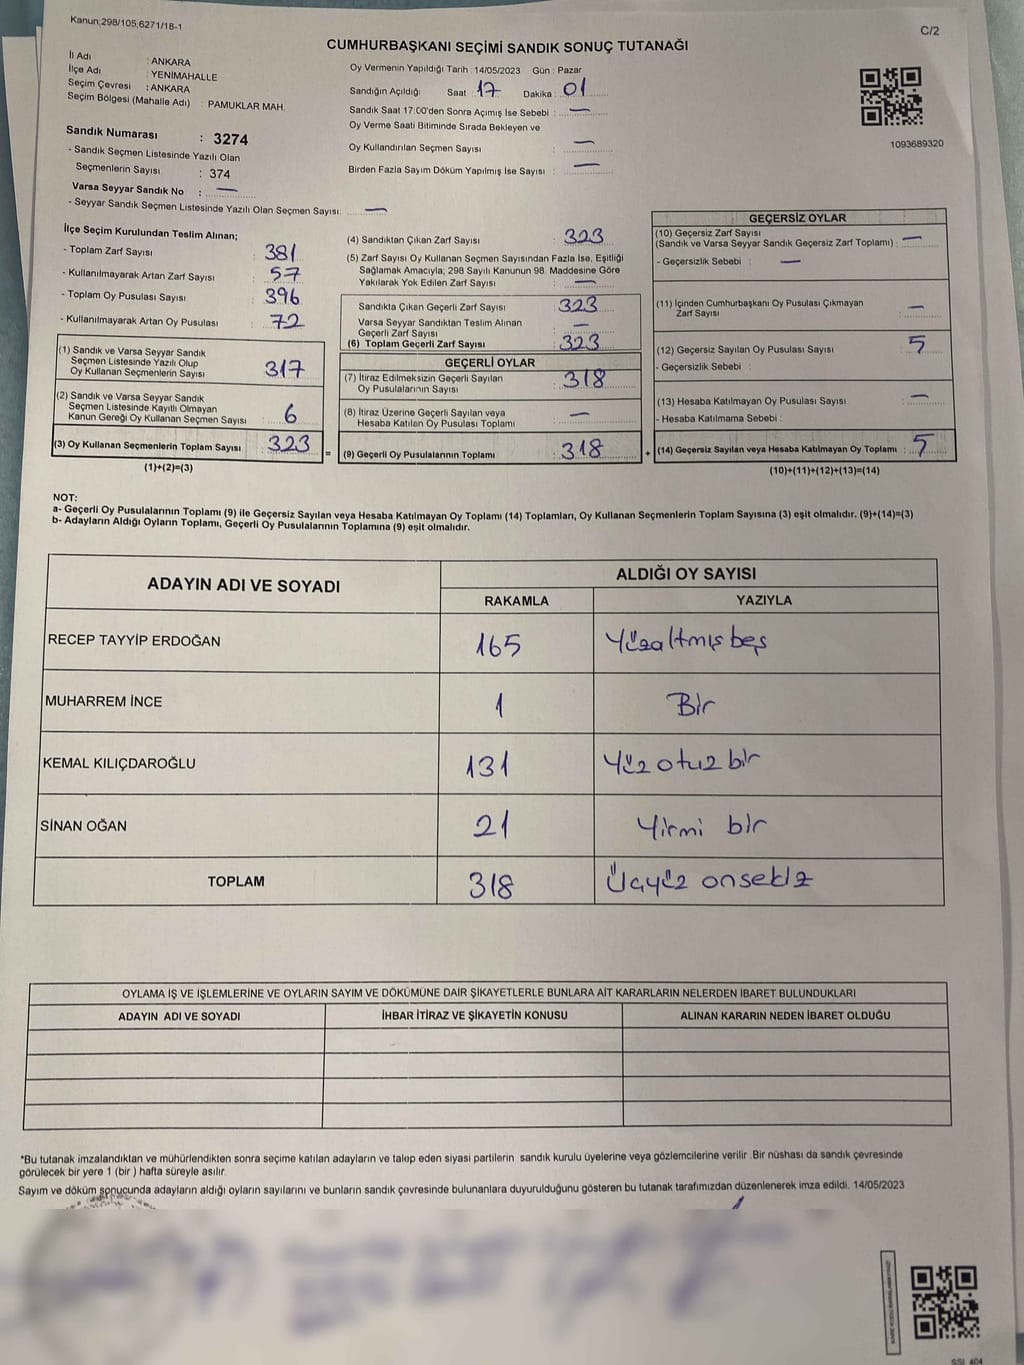 Kanun;298/105;6271/18-1
C/2
CUMHURBAŞKANI SEÇİMİ SANDIK SONUÇ TUTANAĞI
İl Adı : ANKARA
İlçe Adı : YENİMAHALLE
Seçim Çevresi : ANKARA
Seçim Bölgesi (Mahalle Adı) : PAMUKLAR MAH.
Sandık Numarası : 3274
- Sandık Seçmen Listesinde Yazılı Olan
Seçmenlerin Sayısı : 374
Varsa Seyyar Sandık No : —
- Seyyar Sandık Seçmen Listesinde Yazılı Olan Seçmen Sayısı: —
Oy Vermenin Yapıldığı Tarih : 14/05/2023 Gün : Pazar
Sandığın Açıldığı Saat : 17 Dakika : 01
Sandık Saat 17:00'den Sonra Açımış İse Sebebi : —
Oy Verme Saati Bitiminde Sırada Bekleyen ve
Oy Kullandırılan Seçmen Sayısı : —
Birden Fazla Sayım Döküm Yapılmış İse Sayısı : —
1093689320
İlçe Seçim Kurulundan Teslim Alınan;
- Toplam Zarf Sayısı : 381
- Kullanılmayarak Artan Zarf Sayısı : 57
- Toplam Oy Pusulası Sayısı : 396
- Kullanılmayarak Artan Oy Pusulası : 72
(1) Sandık ve Varsa Seyyar Sandık
Seçmen Listesinde Yazılı Olup
Oy Kullanan Seçmenlerin Sayısı : 317
(2) Sandık ve Varsa Seyyar Sandık
Seçmen Listesinde Kayıtlı Olmayan
Kanun Gereği Oy Kullanan Seçmen Sayısı : 6
(3) Oy Kullanan Seçmenlerin Toplam Sayısı : 323
(1)+(2)=(3)
=
(4) Sandıktan Çıkan Zarf Sayısı : 323
(5) Zarf Sayısı Oy Kullanan Seçmen Sayısından Fazla İse, Eşitliği
Sağlamak Amacıyla; 298 Sayılı Kanunun 98. Maddesine Göre
Yakılarak Yok Edilen Zarf Sayısı : —
Sandıkta Çıkan Geçerli Zarf Sayısı : 323
Varsa Seyyar Sandıktan Teslim Alınan
Geçerli Zarf Sayısı : —
(6) Toplam Geçerli Zarf Sayısı : 323
GEÇERLİ OYLAR
(7) İtiraz Edilmeksizin Geçerli Sayılan
Oy Pusulalarının Sayısı : 318
(8) İtiraz Üzerine Geçerli Sayılan veya
Hesaba Katılan Oy Pusulası Toplamı : —
(9) Geçerli Oy Pusulalarının Toplamı : 318
+
GEÇERSİZ OYLAR
(10) Geçersiz Zarf Sayısı
(Sandık ve Varsa Seyyar Sandık Geçersiz Zarf Toplamı) : —
- Geçersizlik Sebebi : —
(11) İçinden Cumhurbaşkanı Oy Pusulası Çıkmayan
Zarf Sayısı : —
(12) Geçersiz Sayılan Oy Pusulası Sayısı : 5
- Geçersizlik Sebebi :
(13) Hesaba Katılmayan Oy Pusulası Sayısı : —
- Hesaba Katılmama Sebebi :
(14) Geçersiz Sayılan veya Hesaba Katılmayan Oy Toplamı : 5
(10)+(11)+(12)+(13)=(14)
NOT:
a- Geçerli Oy Pusulalarının Toplamı (9) ile Geçersiz Sayılan veya Hesaba Katılmayan Oy Toplamı (14) Toplamları, Oy Kullanan Seçmenlerin Toplam Sayısına (3) eşit olmalıdır. (9)+(14)=(3)
b- Adayların Aldığı Oyların Toplamı, Geçerli Oy Pusulalarının Toplamına (9) eşit olmalıdır.
ADAYIN ADI VE SOYADI ALDIĞI OY SAYISI
RAKAMLA YAZIYLA
RECEP TAYYİP ERDOĞAN 165 Yüzaltmış beş
MUHARREM İNCE 1 Bir
KEMAL KILIÇDAROĞLU 131 Yüz otuz bir
SİNAN OĞAN 21 Yirmi bir
TOPLAM 318 Üçyüz onsekiz
OYLAMA İŞ VE İŞLEMLERİNE VE OYLARIN SAYIM VE DÖKÜMÜNE DAİR ŞİKAYETLERLE BUNLARA AİT KARARLARIN NELERDEN İBARET BULUNDUKLARI
ADAYIN ADI VE SOYADI İHBAR İTİRAZ VE ŞİKAYETİN KONUSU ALINAN KARARIN NEDEN İBARET OLDUĞU
*Bu tutanak imzalandıktan ve mühürlendikten sonra seçime katılan adayların ve talep eden siyasi partilerin sandık kurulu üyelerine veya gözlemcilerine verilir .Bir nüshası da sandık çevresinde
görülecek bir yere 1 (bir ) hafta süreyle asılır.
Sayım ve döküm sonucunda adayların aldığı oyların sayılarını ve bunların sandık çevresinde bulunanlara duyurulduğunu gösteren bu tutanak tarafımızdan düzenlenerek imza edildi. 14/05/2023